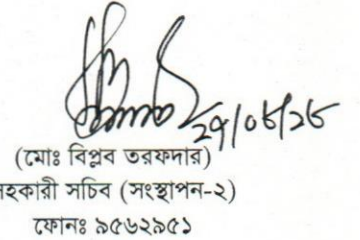 ২৭/০৮/২৮
(মোঃ বিপ্লব তরফদার)
হকারী সচিব (সংস্থাপন-২)
ফোনঃ ৯৫৬২৯৫১